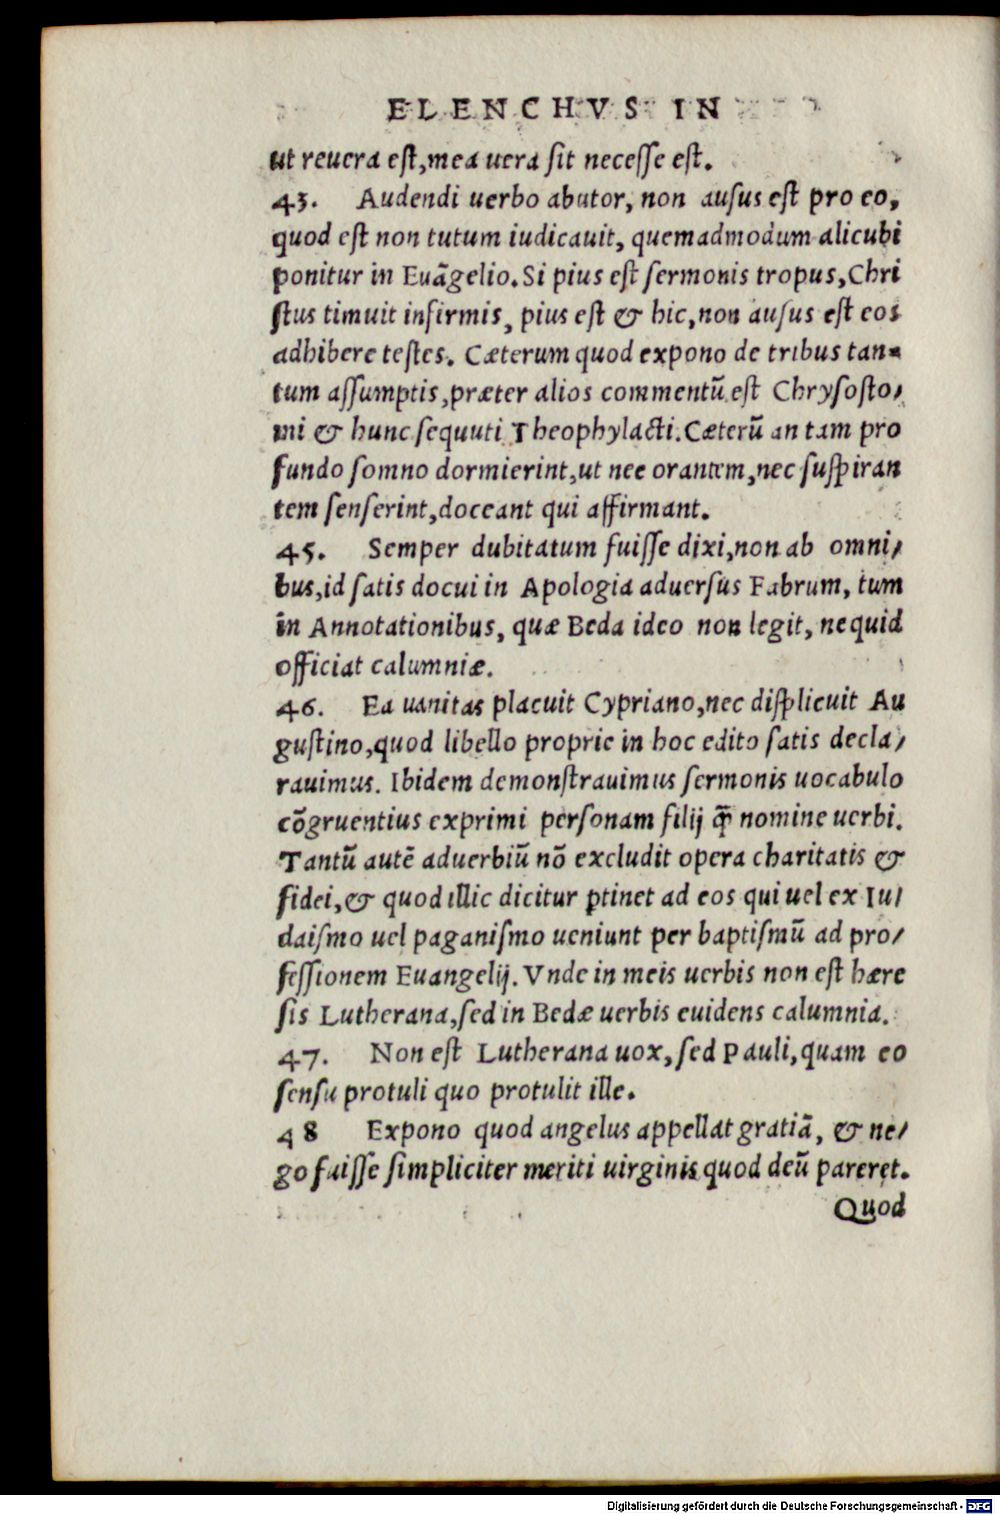 ELENCHVS IN
ut reuera est, mea uera sit necesse est.
43. Audendi uerbo abutor, non ausus est pro eo,
quod est non tutum iudicauit, quemadmodum alicubi
ponitur in Euãgelio. Si pius est sermonis tropus, Chri
stus timuit infirmis, pius est & hic, non ausus est eos
adhibere testes. Cæterum quod expono de tribus tan-
tum assumptis, præter alios commentũ est Chrysosto/
mi & hunc sequuti Theophylacti. Cæterũ an tam pro
fundo somno dormierint, ut nec orantem, nec suspiran
tem senserint, doceant qui affirmant.
45. Semper dubitatum fuisse dixi, non ab omni/
bus, id satis docui in Apologia aduersus Fabrum, tum
in Annotationibus, quæ Beda ideo non legit, ne quid
officiat calumniæ.
46. Ea uanitas placuit Cypriano, nec displicuit Au
gustino, quod libello proprie in hoc edito satis decla/
rauimus. Ibidem demonstrauimus sermonis uocabulo
cõgruentius exprimi personam filij q̃ nomine uerbi.
Tantũ autẽ aduerbiũ nõ excludit opera charitatis &
fidei, & quod illic dicitur ꝑtinet ad eos qui uel ex Iu/
daismo uel paganismo ueniunt per baptismũ ad pro/
fessionem Euangelij. Vnde in meis uerbis non est hære
sis Lutherana, sed in Bedæ uerbis euidens calumnia.
47. Non est Lutherana uox, sed Pauli, quam eo
sensu protuli quo protulit ille.
48 Expono quod angelus appellat gratiã, & ne/
go fuisse simpliciter meriti uirginis quod deũ pareret.
Quod
Digitalisierung gefördert durch die Deutsche Forschungsgemeinschaft - DFG